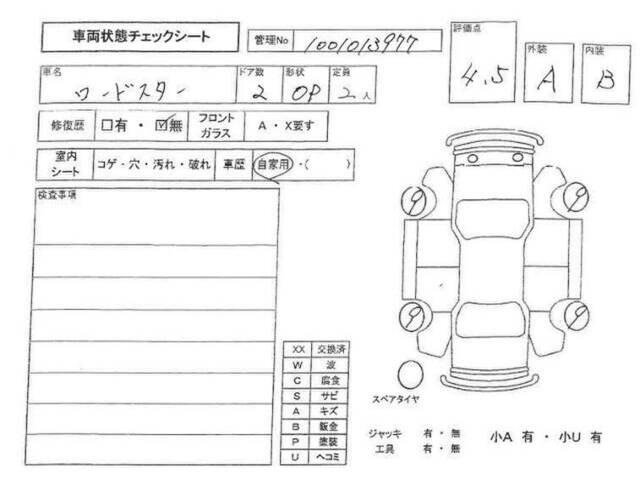 車両状態チェックシート
管理No 1001013977
評価点 4.5
外装 A
内装 B
車名 ロードスター
ドア数 2
形状 OP
定員 2人
修復歴 □有・☑無
フロントガラス A・X要す
室内シート コゲ・穴・汚れ・破れ
車歴 自家用・( )
検査事項
9 9
9 9
XX 交換済
W 波
C 腐食
S サビ
A キズ
B 鈑金
P 塗装
U ヘコミ
スペアタイヤ
ジャッキ 有・無
工具 有・無
小A 有・小U 有